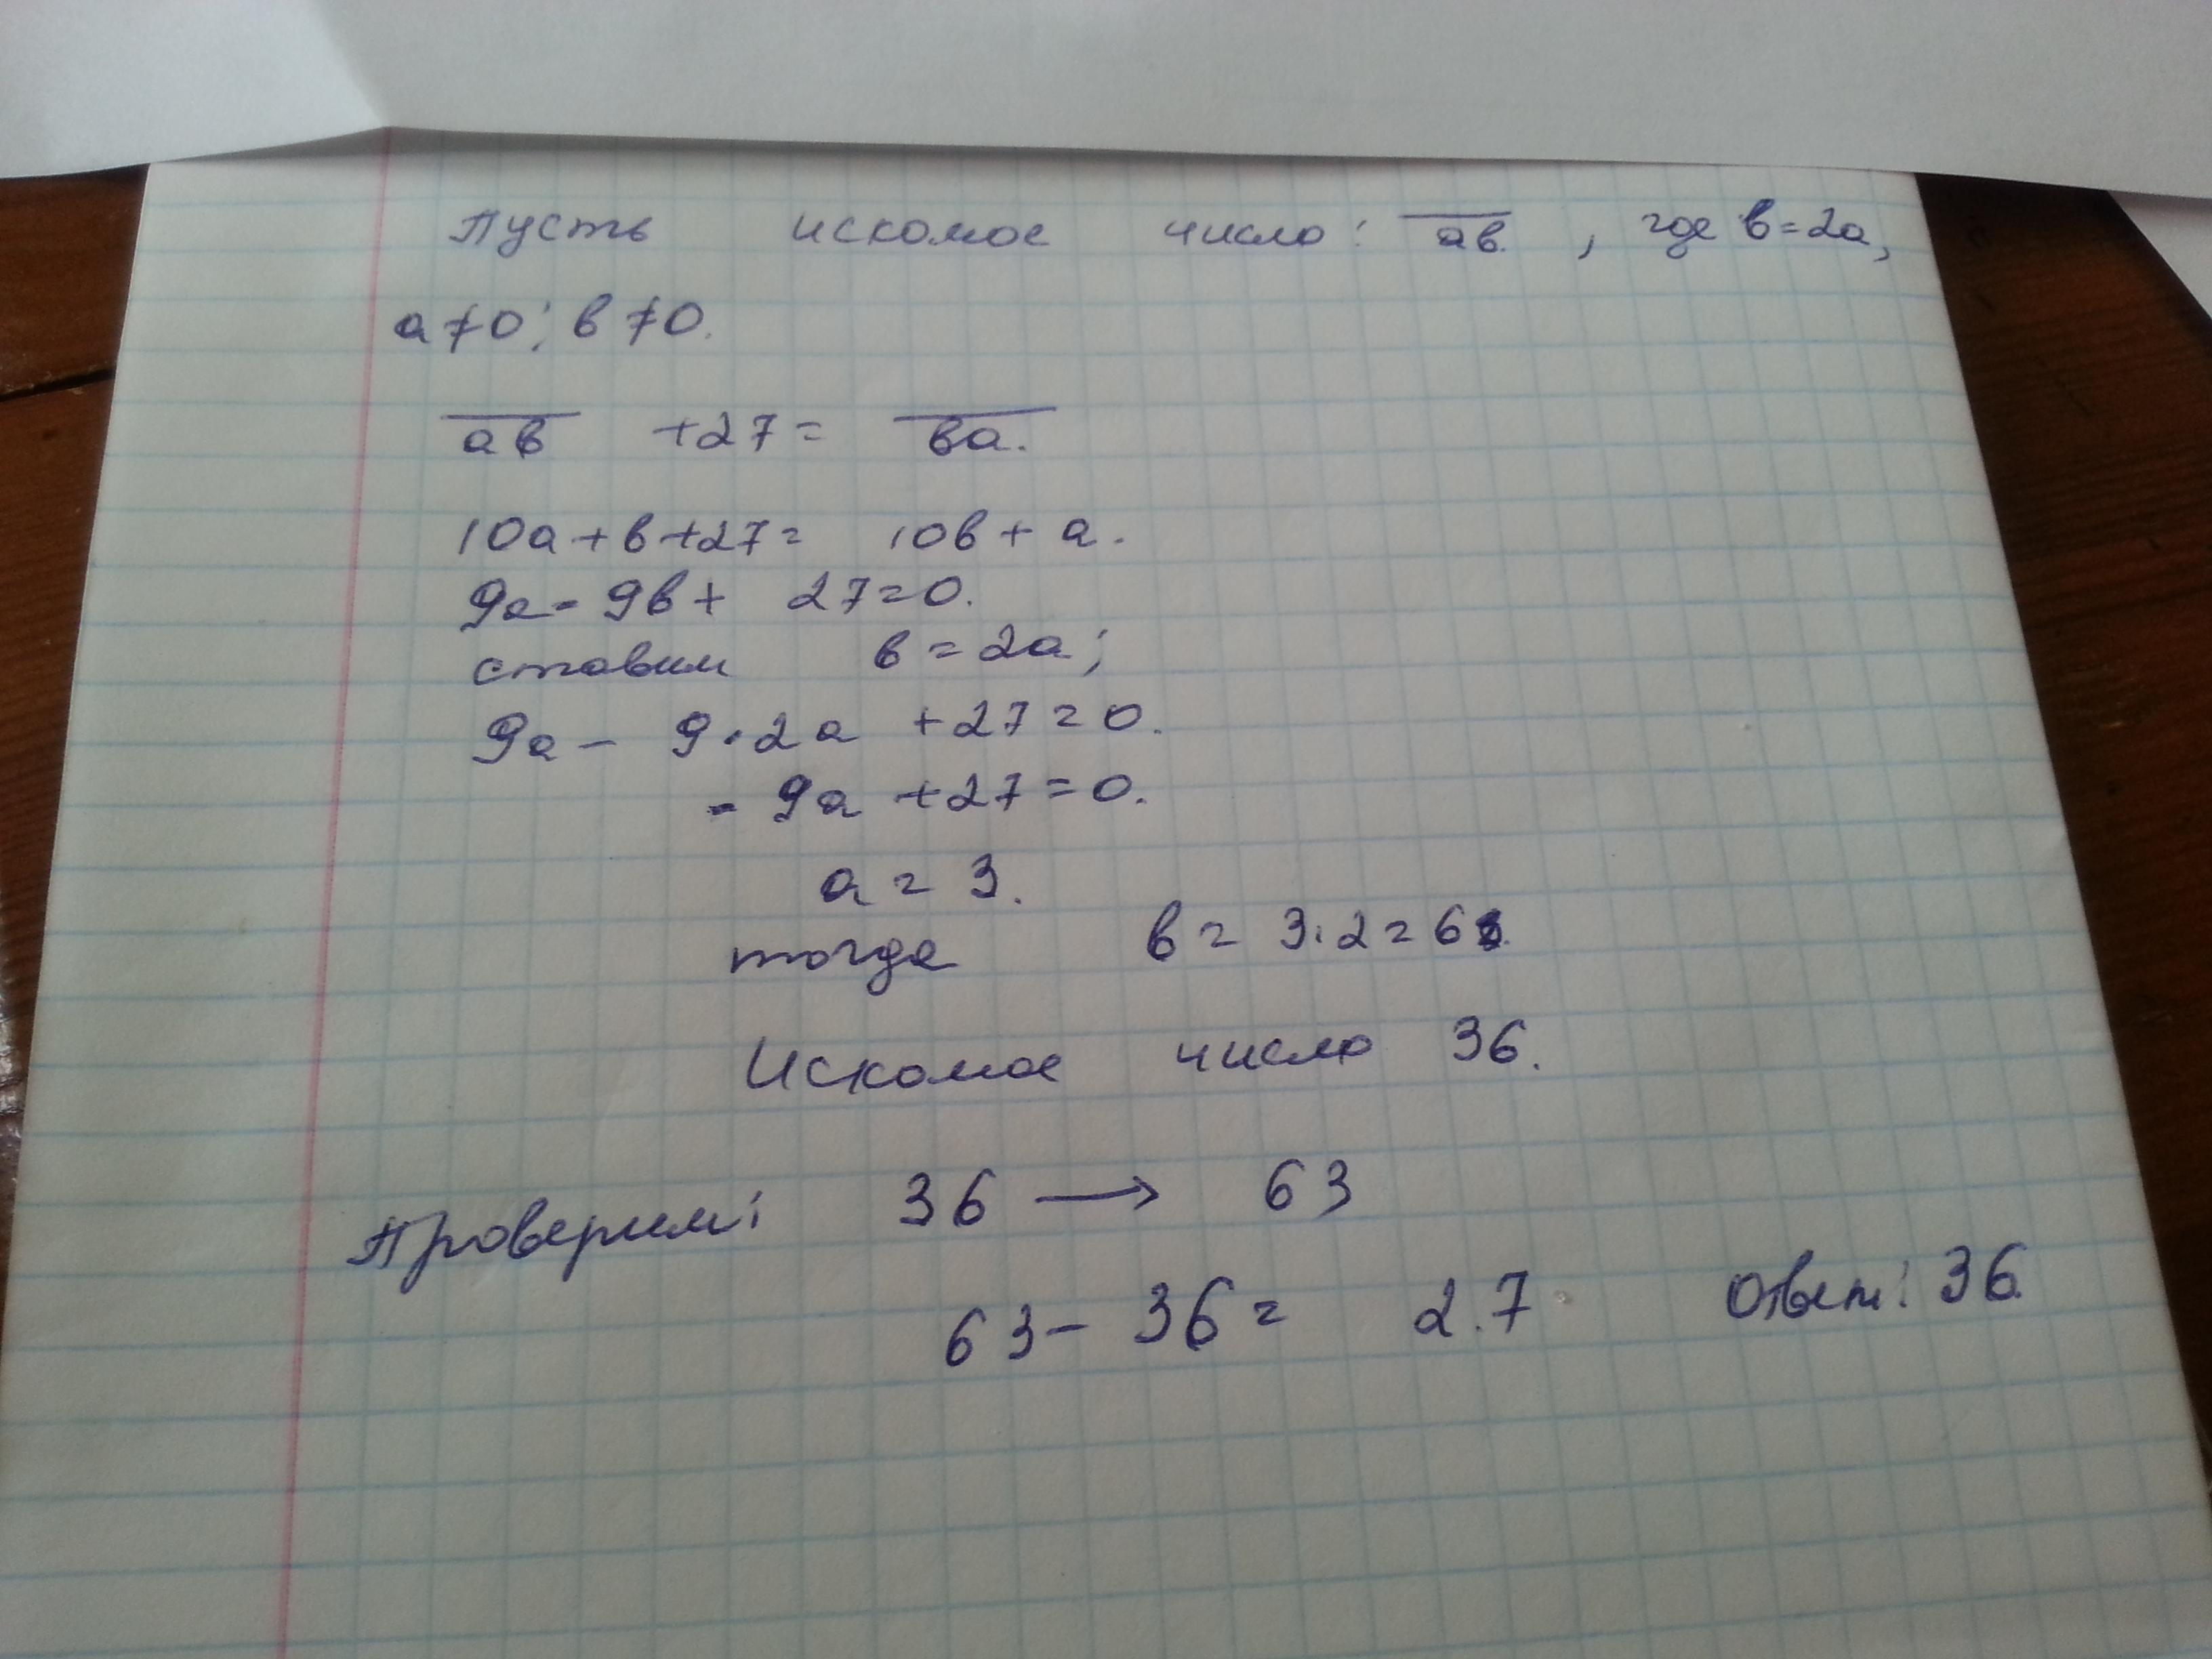 Пусть искомое число: ab, где b=2a,
a≠0; b≠0.
ab +27= ba.
10a+b+27= 10b+a.
9a-9b+27=0.
ставим b=2a;
9a-9·2a+27=0.
-9a+27=0.
a=3.
тогда b=3·2=6
Искомое число 36.
Проверим: 36 → 63
63-36= 27 Ответ: 36.